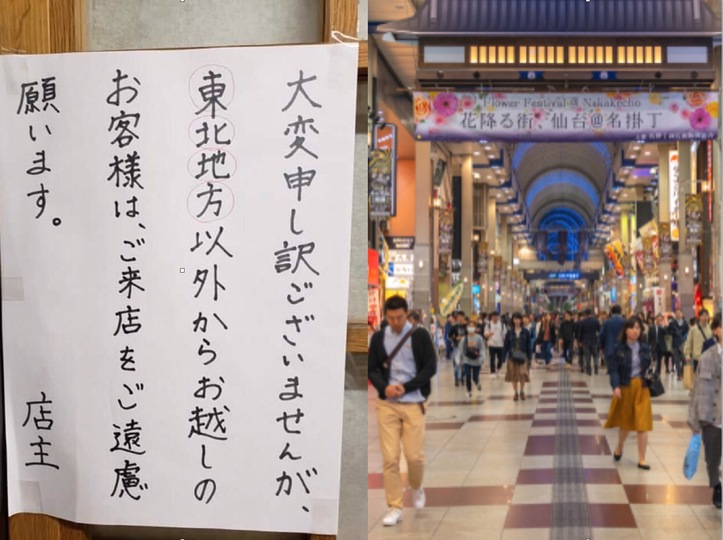 大変申し訳ございませんが、
東北地方以外からお越しの
お客様は、ご来店をご遠慮
願います。 店主
Flower Festival @ Nakakecho
花降る街、仙台@名掛丁